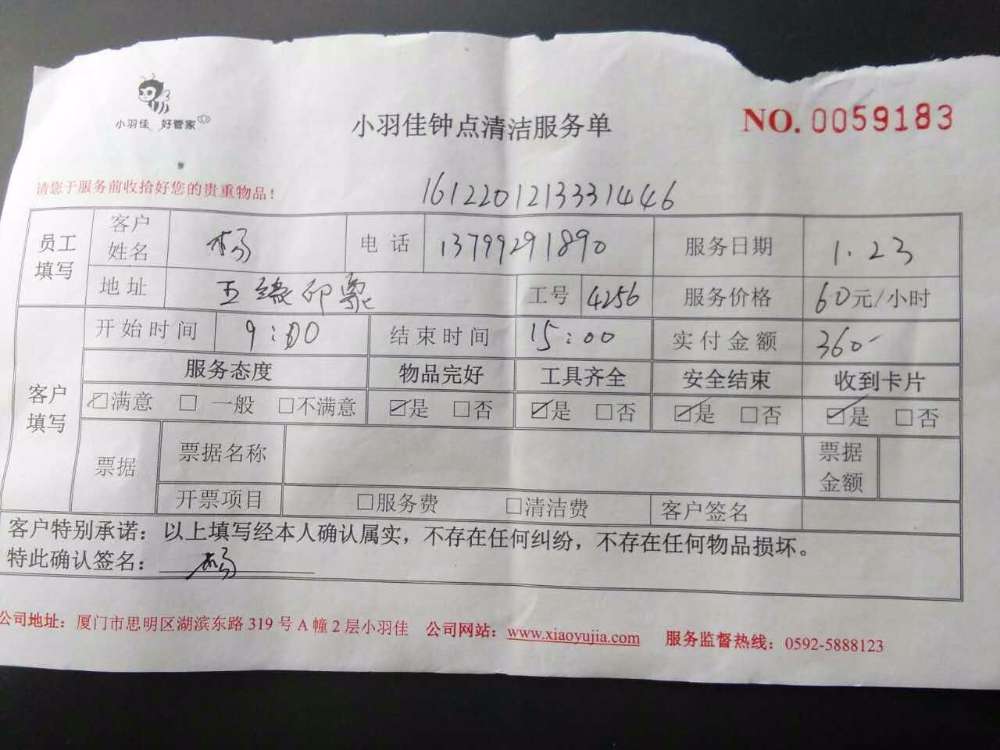 小羽佳 好管家
小羽佳钟点清洁服务单
NO. 0059183
请您于服务前收拾好您的贵重物品！
1612201213331446
员工填写 客户姓名 杨 电话 13799291890 服务日期 1.23
地址 五缘印象 工号 4256 服务价格 60元/小时
客户填写 开始时间 9:00 结束时间 15:00 实付金额 360-
服务态度 物品完好 工具齐全 安全结束 收到卡片
☑满意 □一般 □不满意 ☑是 □否 ☑是 □否 ☑是 □否 ☑是 □否
票据 票据名称 票据金额
开票项目 □服务费 □清洁费 客户签名
客户特别承诺：以上填写经本人确认属实，不存在任何纠纷，不存在任何物品损坏。
特此确认签名：杨
公司地址：厦门市思明区湖滨东路319号A幢2层小羽佳 公司网站：www.xiaoyujia.com 服务监督热线：0592-5888123